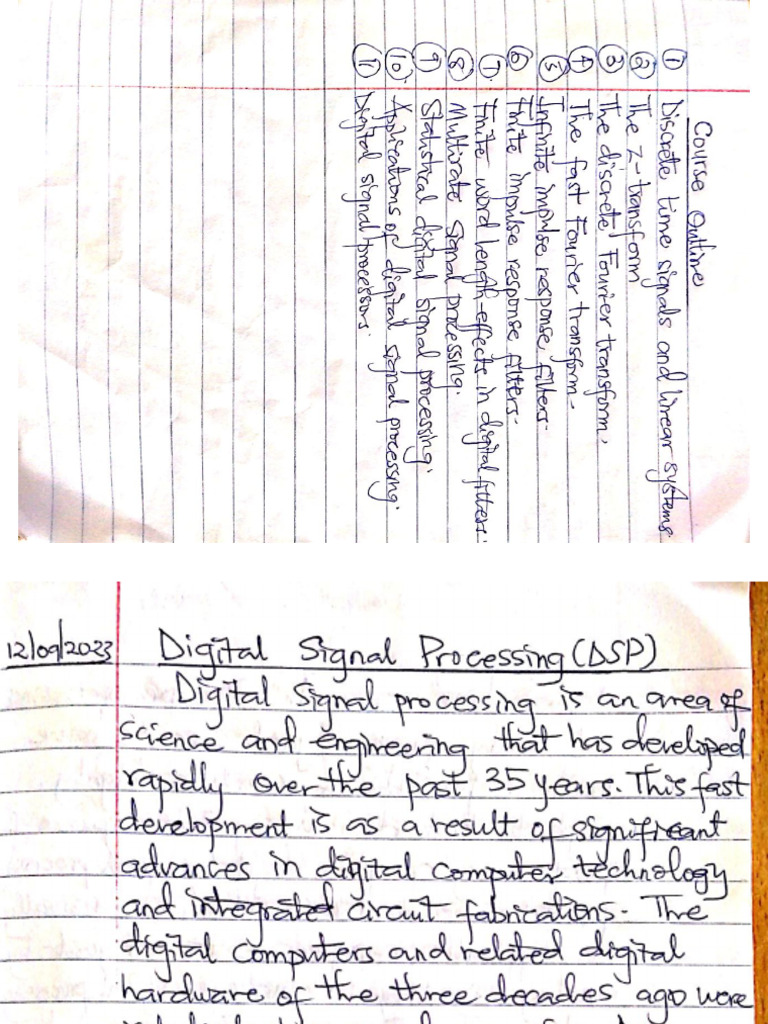 Course Outline
① Discrete time signals and linear systems.
② The Z-transform
③ The discrete Fourier transform.
④ The fast Fourier transform.
⑤ Infinite impulse response filters.
⑥ Finite impulse response filters.
⑦ Finite word length effects in digital filters.
⑧ Multirate signal processing.
⑨ Statistical digital signal processing.
⑩ Applications of digital signal processing.
⑪ Digital signal processors.
12/09/2023 Digital Signal Processing (DSP)
Digital Signal processing is an area of
science and engineering that has developed
rapidly over the past 35 years. This fast
development is as a result of significant
advances in digital computer technology
and integrated circuit fabrications. The
digital computers and related digital
hardware of the three decades ago were